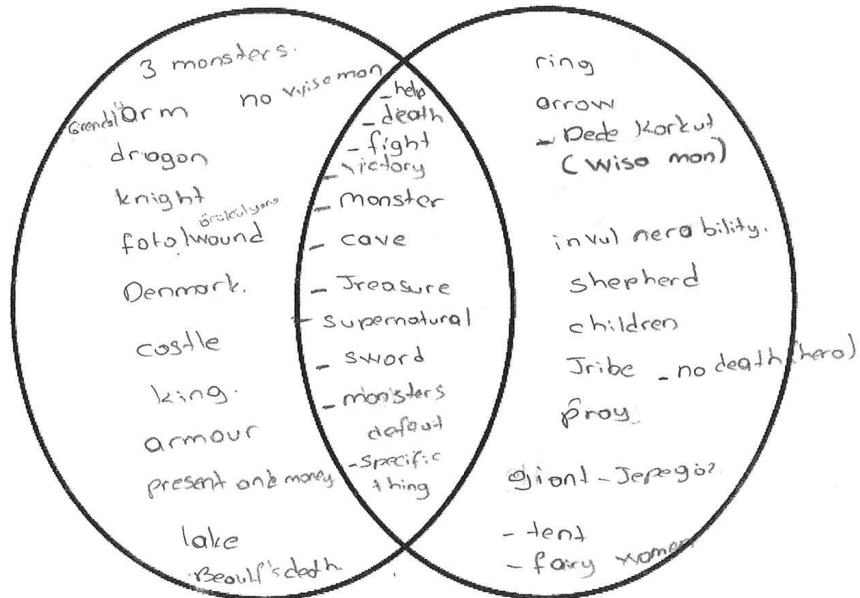 3 monsters.
no wise man
Grendel's arm
dragon
knight
fatal wound
Denmark.
castle
king.
armour
present and money
lake
Beoulf's death.
- help
- death
- fight
- victory
- monster
- cave
- Treasure
- supernatural
- sword
- monisters
defeat
- specific
thing
ring
arrow
- Dede Korkut
(wise man)
invulnerability.
shepherd
children
Tribe - no death (hero)
pray
giant - Tepegöz
- tent
- fairy women